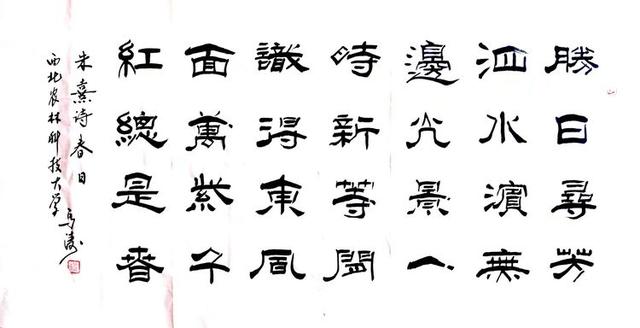 勝日尋芳
泗水濱無
邊光景一
時新等閒
識得東風
面萬紫千
紅總是春
朱熹诗春日
西北农林科技大学